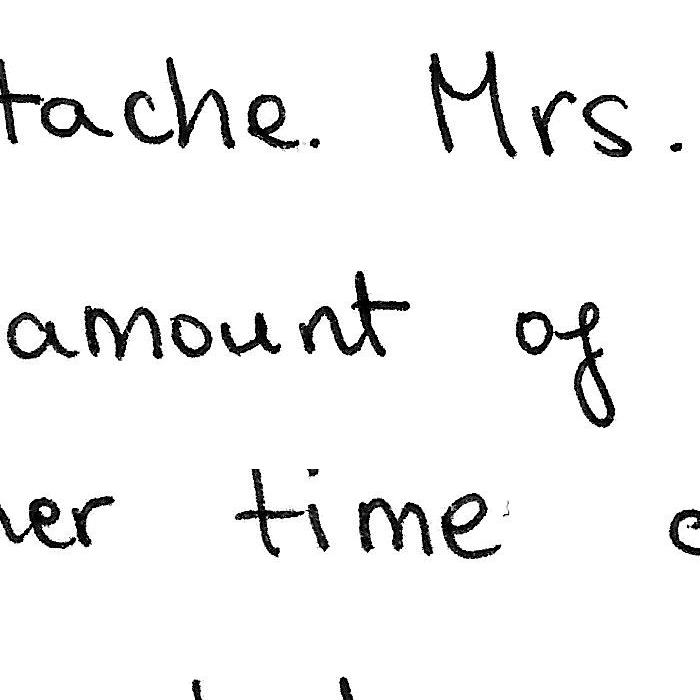 tache. Mrs.
amount of
her time